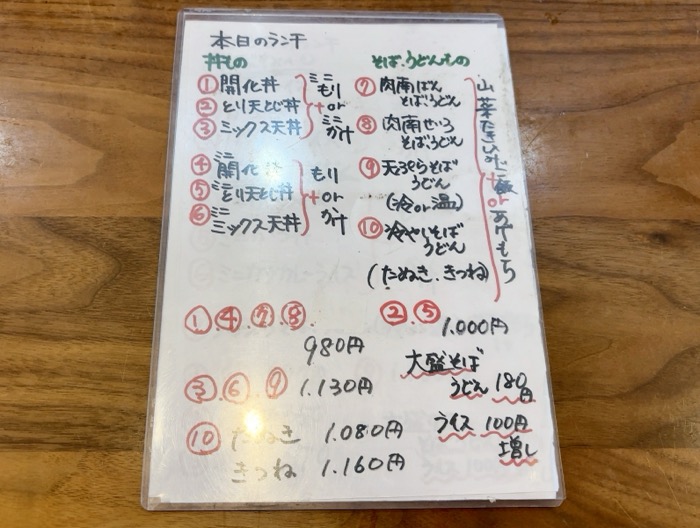 本日のランチ
丼もの
① 開化丼
② とり天とじ丼
③ ミックス天丼
ミニもり
+or
ミニかけ
④ ミニ開化丼
⑤ ミニとり天とじ丼
⑥ ミニミックス天丼
もり
+or
かけ
そば、うどんもの
⑦ 肉南ばん
そばうどん
⑧ 肉南せいろ
そばうどん
⑨ 天ぷらそば
うどん
(冷or温)
⑩ 冷やしそば
うどん
(たぬき、きつね)
山菜たきこみご飯
+or
①.④.⑦.⑧.
980円
②⑤
1.000円
③.⑥.⑨ 1.130円
⑩ たぬき 1.080円
きつね 1.160円
大盛そば
うどん 180円
ライス 100円
増し